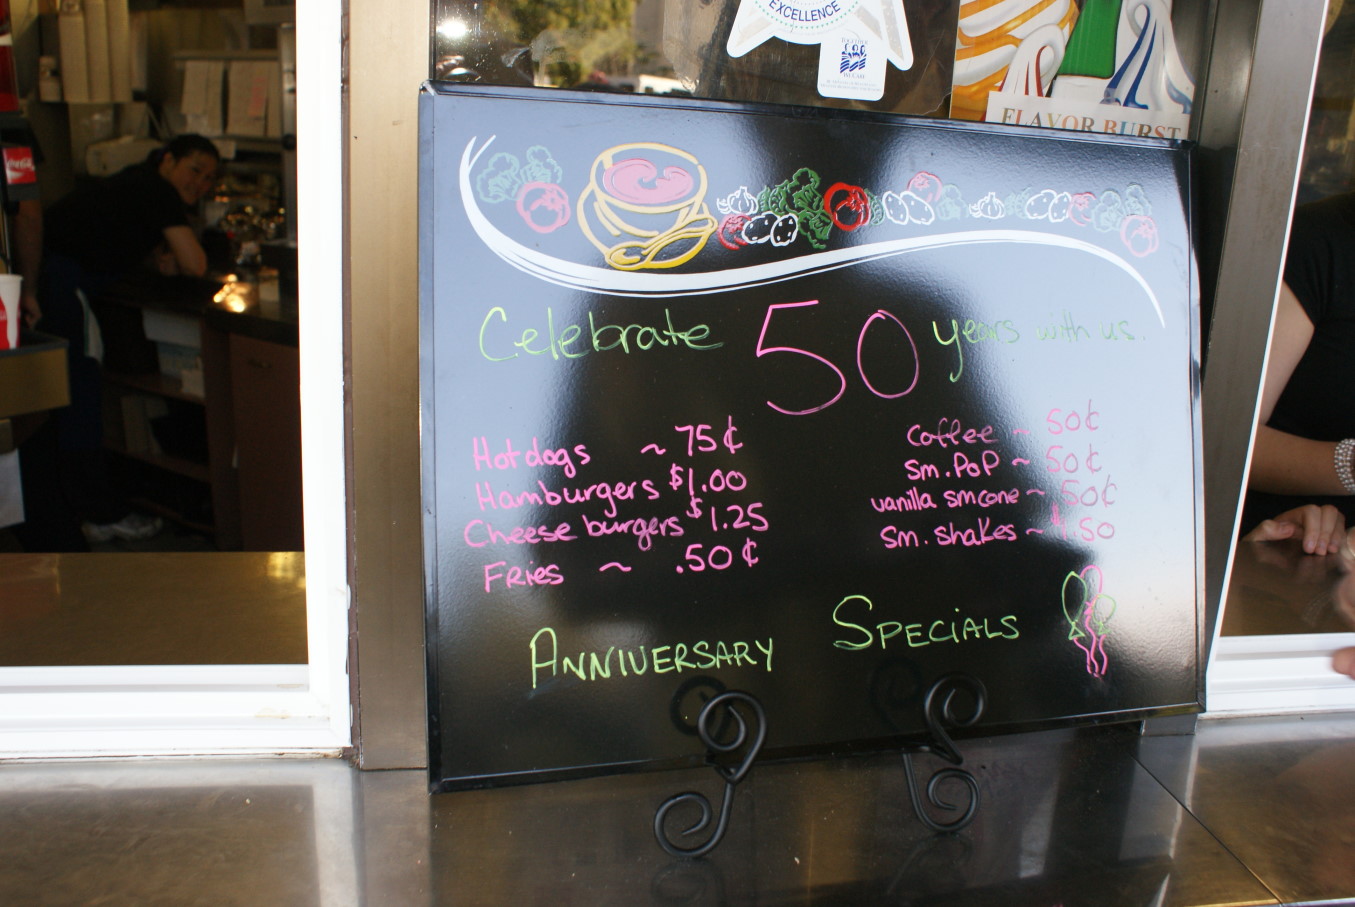 EXCELLENCE
FLAVOR BURST
Coca-Cola
Celebrate 50 years with us.
Hotdogs ~ 75¢
Hamburgers $1.00
Cheese burgers $1.25
Fries ~ .50¢
Coffee ~ 50¢
Sm. Pop ~ 50¢
vanilla sm cone ~ 50¢
Sm. shakes ~ $1.50
ANNIVERSARY SPECiALS